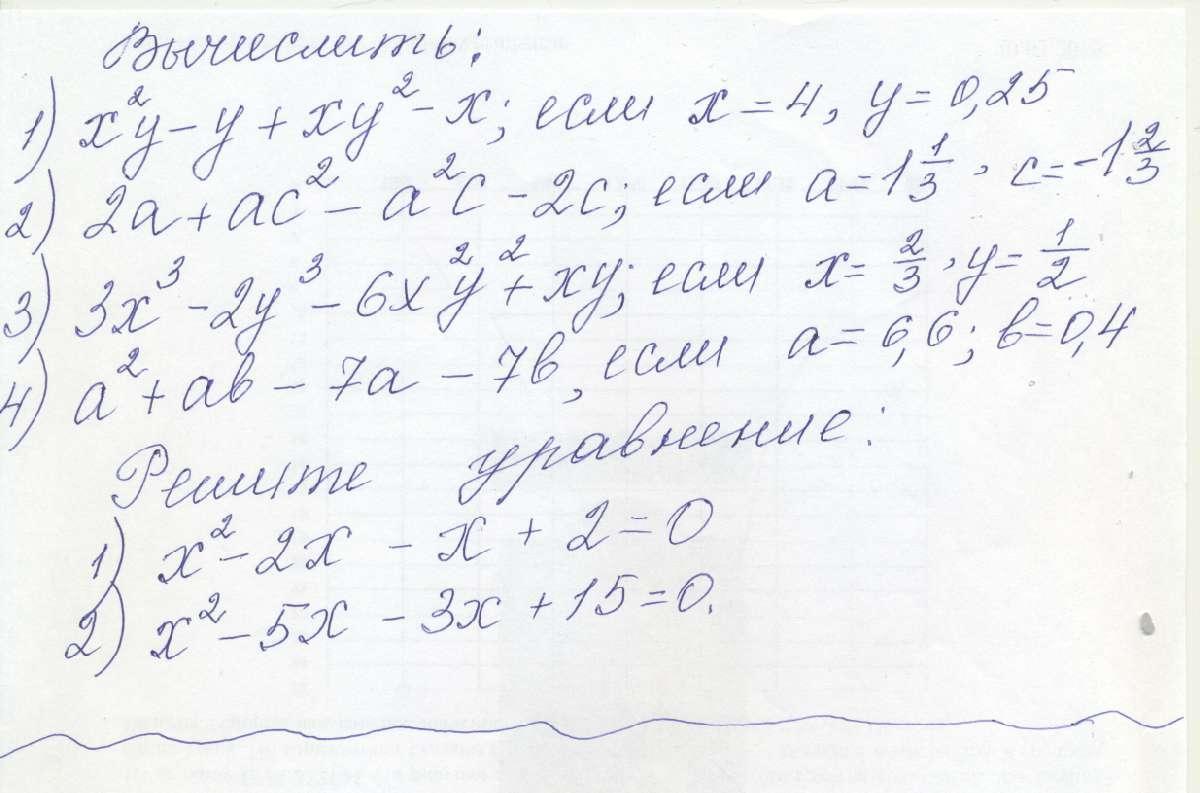 Вычислить:
1) x²y – y + xy² – x; если x = 4, y = 0,25
2) 2a + ac² – a²c – 2c; если a = 1 1/3, c = –1 2/3
3) 3x³ – 2y³ – 6x²y² + xy; если x = 2/3, y = 1/2
4) a² + ab – 7a – 7b, если a = 6,6; b = 0,4
Решите уравнение:
1) x² – 2x – x + 2 = 0
2) x² – 5x – 3x + 15 = 0.